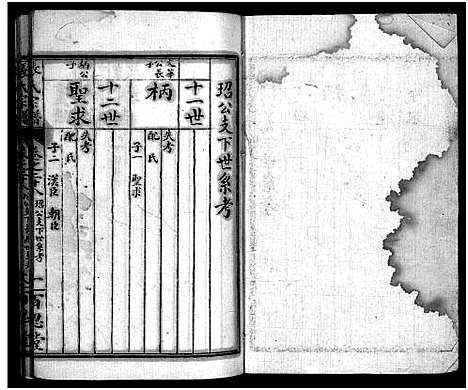 玿公支下世系考
十一世
文華公長子
柄
失考
配氏
子一 聖求
十二世
柄公子
聖求
失考
配氏
子二 漢臣 朝臣
玿公支下世系考